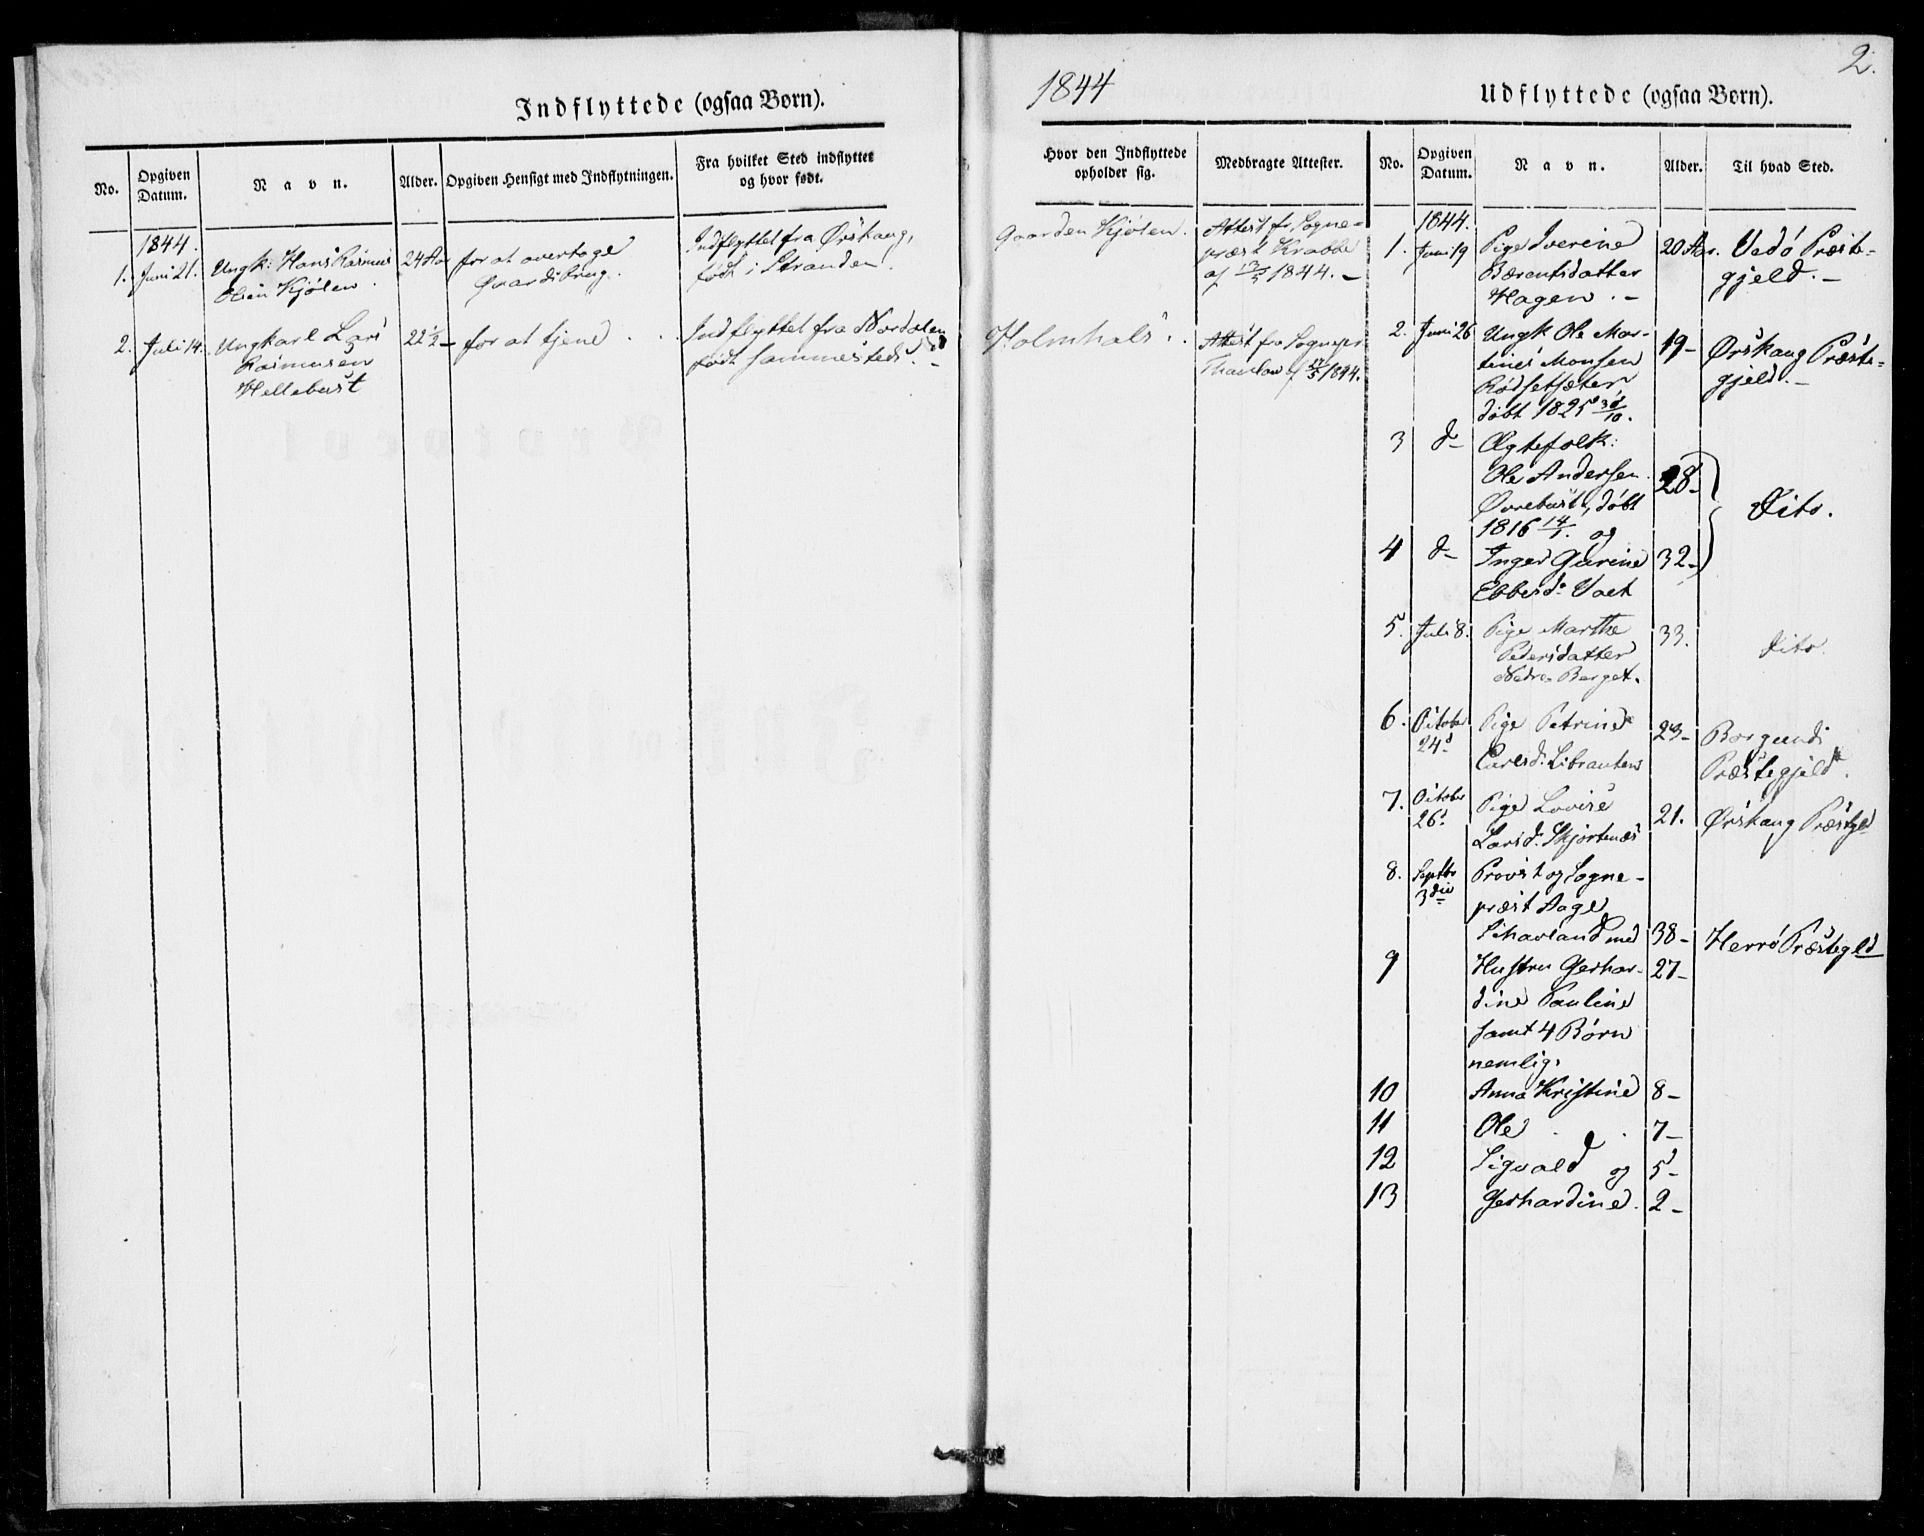 Indflyttede (ogsaa Børn).
No.
Opgiven
Datum.
Navn.
Alder.
Opgiven Hensigt med Indflytningen.
Fra hvilket Sted indflyttet
og hvor født.
1844.
1. Juni 21.
Ungk: Hans Rasmus
Kjølen.
24 Aar
for at overtage
Gaardsbrug.
Indflyttet fra Ørskoug,
født i Stranden.
2. Juli 14.
Ungkarl Lars
Rasmusen
Hellebust
22½ –
for at tjene . .
Indflyttet fra Nordalen
født sammesteds. –
1844
2.
Udflyttede (ogsaa Børn).
Hvor den Indflyttede
opholder sig.
Medbragte Attester.
No.
Opgiven
Datum.
Navn.
Alder.
Til hvad Sted.
Gaarden Kjølen.
Attest fr Sogne-
præst Krabbe
af 13/5 1844. –
Holmhals . .
Attest fr Sognepr
af 1844.
1844.
1. Juni 19
Pige Iverine
Bærentsdatter
Hagen. –
20 Aar.
Vedø Præste-
gjeld. –
2. Juni 26
Ungk Ole Mar-
tines Monsen
Rødsetsæter
døbt 1825 30/10.
19 –
Ørskoug Præste-
gjeld. –
3 d –
Ægtefolk:
Ole Andersen
Øvrebust, døbt
1816 14/1. og
28 –
Dito.
4 d –
Inger Gurine
Ebbesd: Valt
32 –
5. Juli 8.
Pige Marthe
Pedersdatter
Nedre Berget.
33.
dito.
6. October
24d
Pige Petrine
Carlsd: Librantens
23 –
Borgunds
Præstegjeld.
7. October
26d
Pige Lovise
Larsd: Skjortnæs
21.
Ørskoug Præstgld
8. Septbr
3die
Provst og Sogne-
præst Aage
Schavland med
38 –
Herrø Præstegld
9
Hustru Gerhar-
dine Pauline
samt 4 Børn
nemlig:
27 –
10
Anna Kristine
8 –
11
Ole . .
7 –
12
Sigvald og
5 –
13
Gerhardine.
2 –